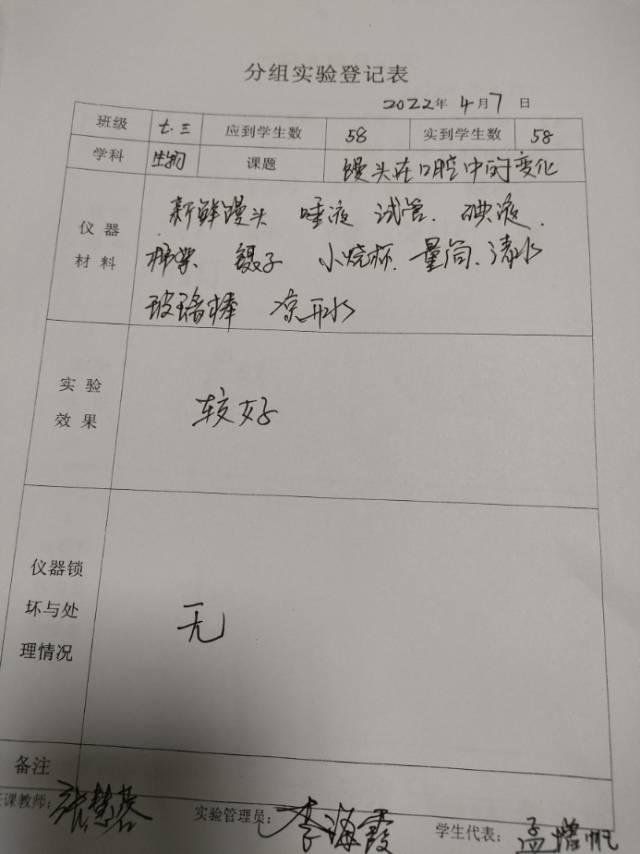 分组实验登记表
2022年4月7日
班级 七.三 应到学生数 58 实到学生数 58
学科 生物 课题 馒头在口腔中的变化
仪器 新鲜馒头 唾液 试管. 碘液.
材料 镊子 小烧杯. 量筒. 清水
玻璃棒 凉开水
实验
效果 较好
仪器锁
坏与处 无
理情况
备注
课教师: 张慧 实验管理员: 李海霞 学生代表: 孟